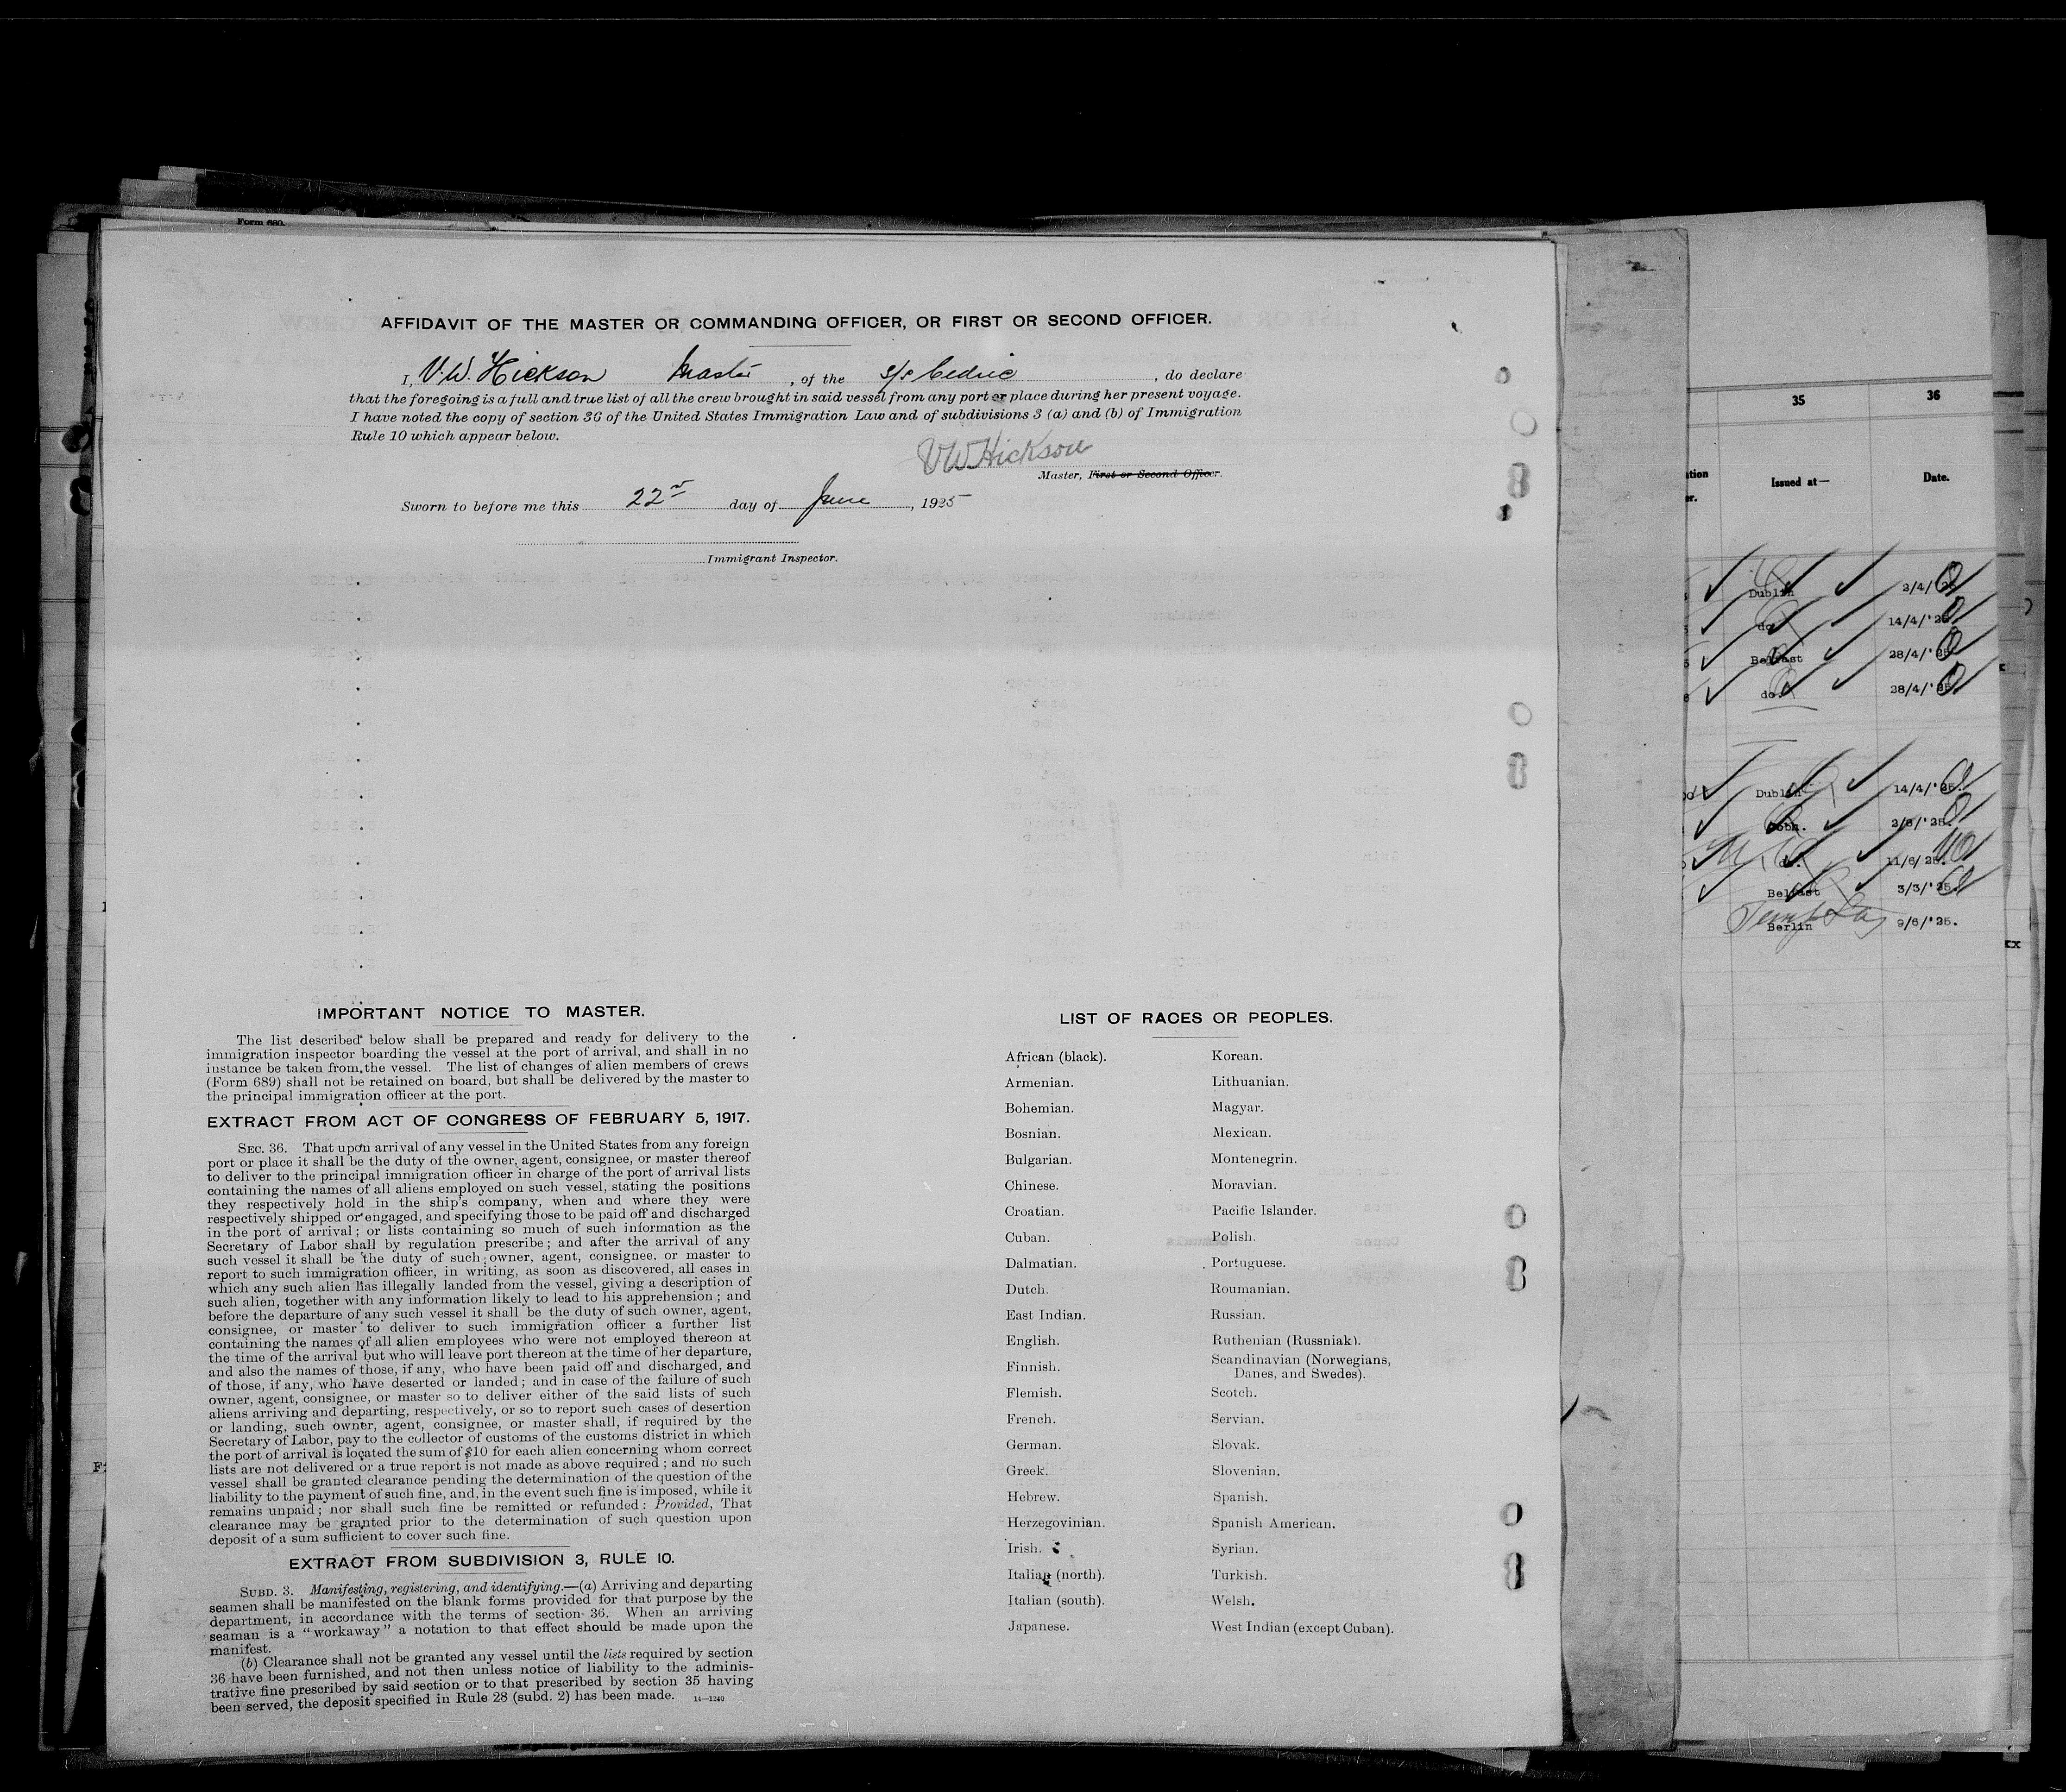 Form 689.
AFFIDAVIT OF THE MASTER OR COMMANDING OFFICER, OR FIRST OR SECOND OFFICER.
I, V.W. Hickson Master, of the S/S Cedric, do declare
that the foregoing is a full and true list of all the crew brought in said vessel from any port or place during her present voyage.
I have noted the copy of section 36 of the United States Immigration Law and of subdivisions 3 (a) and (b) of Immigration
Rule 10 which appear below.
VW Hickson
Master, First or Second Officer.
Sworn to before me this 22nd day of June, 1925
Immigrant Inspector.
IMPORTANT NOTICE TO MASTER.
The list described below shall be prepared and ready for delivery to the
immigration inspector boarding the vessel at the port of arrival, and shall in no
instance be taken from the vessel. The list of changes of alien members of crews
(Form 689) shall not be retained on board, but shall be delivered by the master to
the principal immigration officer at the port.
EXTRACT FROM ACT OF CONGRESS OF FEBRUARY 5, 1917.
SEC. 36. That upon arrival of any vessel in the United States from any foreign
port or place it shall be the duty of the owner, agent, consignee, or master thereof
to deliver to the principal immigration officer in charge of the port of arrival lists
containing the names of all aliens employed on such vessel, stating the positions
they respectively hold in the ship's company, when and where they were
respectively shipped or engaged, and specifying those to be paid off and discharged
in the port of arrival; or lists containing so much of such information as the
Secretary of Labor shall by regulation prescribe; and after the arrival of any
such vessel it shall be the duty of such owner, agent, consignee, or master to
report to such immigration officer, in writing, as soon as discovered, all cases in
which any such alien has illegally landed from the vessel, giving a description of
such alien, together with any information likely to lead to his apprehension; and
before the departure of any such vessel it shall be the duty of such owner, agent,
consignee, or master to deliver to such immigration officer a further list
containing the names of all alien employees who were not employed thereon at
the time of the arrival but who will leave port thereon at the time of her departure,
and also the names of those, if any, who have been paid off and discharged, and
of those, if any, who have deserted or landed; and in case of the failure of such
owner, agent, consignee, or master so to deliver either of the said lists of such
aliens arriving and departing, respectively, or so to report such cases of desertion
or landing, such owner, agent, consignee, or master shall, if required by the
Secretary of Labor, pay to the collector of customs of the customs district in which
the port of arrival is located the sum of $10 for each alien concerning whom correct
lists are not delivered or a true report is not made as above required; and no such
vessel shall be granted clearance pending the determination of the question of the
liability to the payment of such fine, and, in the event such fine is imposed, while it
remains unpaid; nor shall such fine be remitted or refunded: Provided, That
clearance may be granted prior to the determination of such question upon
deposit of a sum sufficient to cover such fine.
EXTRACT FROM SUBDIVISION 3, RULE 10.
SUBD. 3. Manifesting, registering, and identifying.—(a) Arriving and departing
seamen shall be manifested on the blank forms provided for that purpose by the
department, in accordance with the terms of section 36. When an arriving
seaman is a "workaway" a notation to that effect should be made upon the
manifest.
(b) Clearance shall not be granted any vessel until the lists required by section
36 have been furnished, and not then unless notice of liability to the adminis-
trative fine prescribed by said section or to that prescribed by section 35 having
been served, the deposit specified in Rule 28 (subd. 2) has been made. 14—1240
LIST OF RACES OR PEOPLES.
African (black).
Armenian.
Bohemian.
Bosnian.
Bulgarian.
Chinese.
Croatian.
Cuban.
Dalmatian.
Dutch.
East Indian.
English.
Finnish.
Flemish.
French.
German.
Greek.
Hebrew.
Herzegovinian.
Irish.
Italian (north).
Italian (south).
Japanese.
Korean.
Lithuanian.
Magyar.
Mexican.
Montenegrin.
Moravian.
Pacific Islander.
Polish.
Portuguese.
Roumanian.
Russian.
Ruthenian (Russniak).
Scandinavian (Norwegians,
Danes, and Swedes).
Scotch.
Servian.
Slovak.
Slovenian.
Spanish.
Spanish American.
Syrian.
Turkish.
Welsh.
West Indian (except Cuban).
35 36
Issued at— Date.
Dublin 2/4/'25
do. 14/4/'25
Belfast 28/4/'25
do. 28/4/'25
Dublin 14/4/'25.
Cobh. 2/6/'25.
do. 11/6/'25.
Belfast 3/3/'25.
Berlin 9/6/'25.